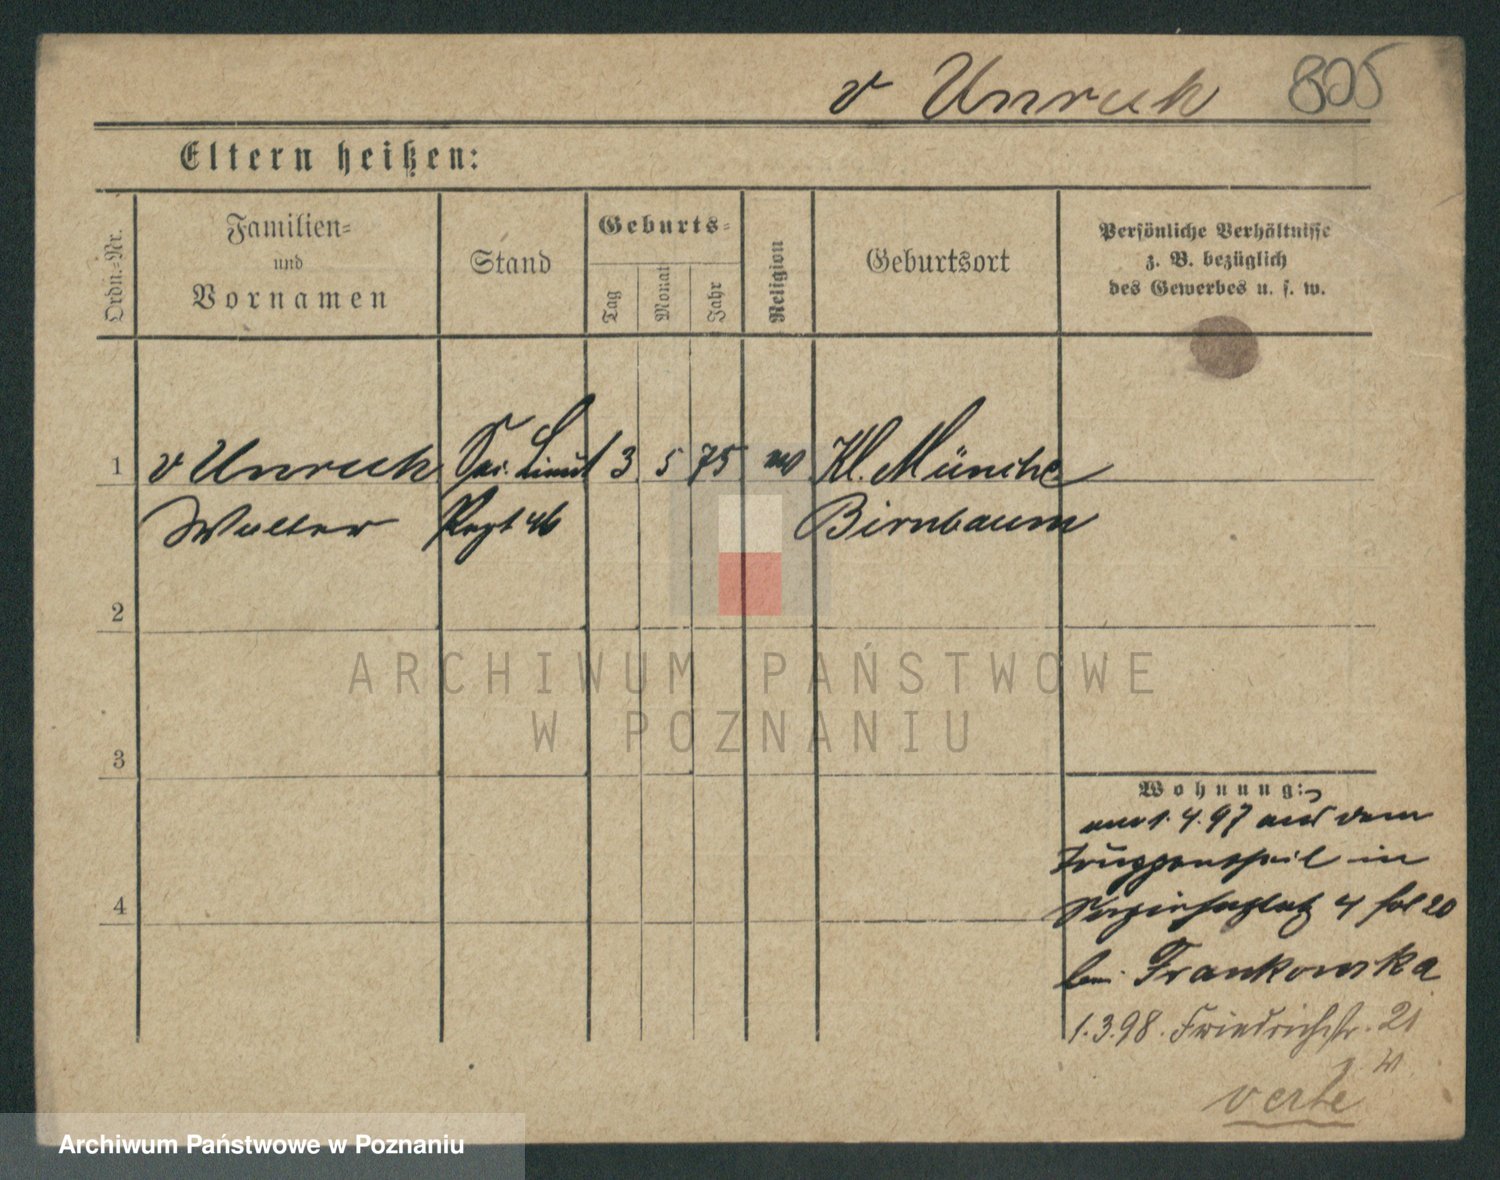 v Unruh 825
Eltern heißen:
Ordn.-Nr.
Familien-
und
Vornamen
Stand
Geburts-
Tag
Monat
Jahr
Religion
Geburtsort
Persönliche Verhältnisse
z. B. bezüglich
des Gewerbes u. s. w.
1 v Unruh Sec. Lieut 3 5 75 Kl. Münche
Walter Regt 46 Birnbaum
2
3
4
Wohnung:
am 1.4.97 aus dem
Truppentheil in
4 20
bei Frankowska
1.3.98. Friedrichstr. 21
verte
ARCHIWUM PAŃSTWOWE
W POZNANIU
Archiwum Państwowe w Poznaniu